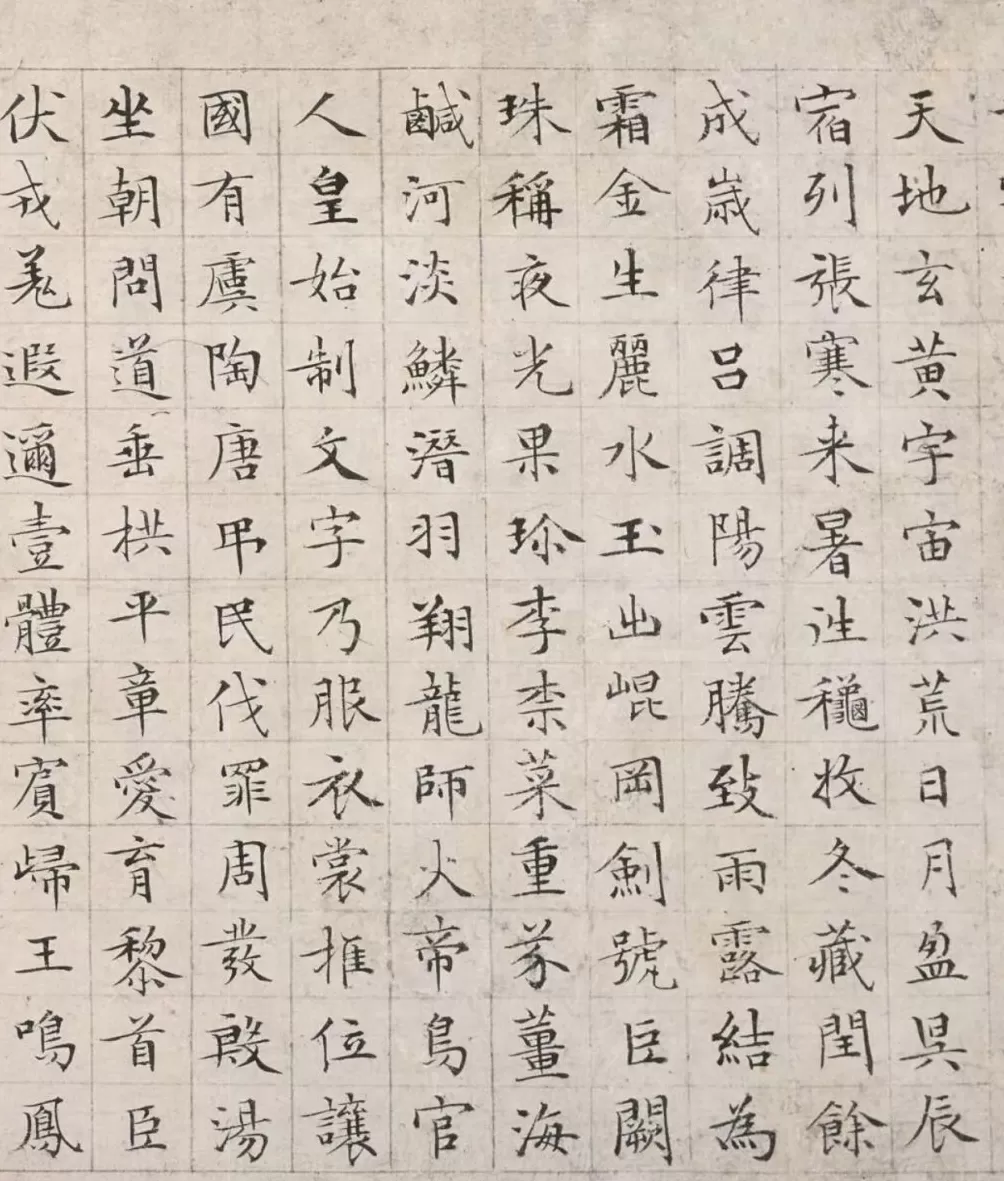 天地玄黄宇宙洪荒日月盈昃辰
宿列張寒来暑往穐收冬藏閏餘
成歲律呂調陽雲騰致雨露結為
霜金生麗水玉出崐岡劍號巨闕
珠稱夜光果珎李柰菜重芥薑海
鹹河淡鱗潛羽翔龍師火帝鳥官
人皇始制文字乃服衣裳推位讓
國有虞陶唐弔民伐罪周發殷湯
坐朝問道垂拱平章愛育黎首臣
伏戎羌遐邇壹體率賓歸王鳴鳳